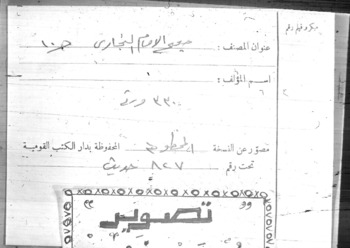 ميكروفيلم رقم
عنوان المصنف : صحيح الإمام البخارى حـ ١٠
اسم المؤلف :
٣٣٠ ورقة
مصور عن النسخة المخطوطة المحفوظة بدار الكتب القومية
تحت رقم ٨٢٧ حديث
تصوير